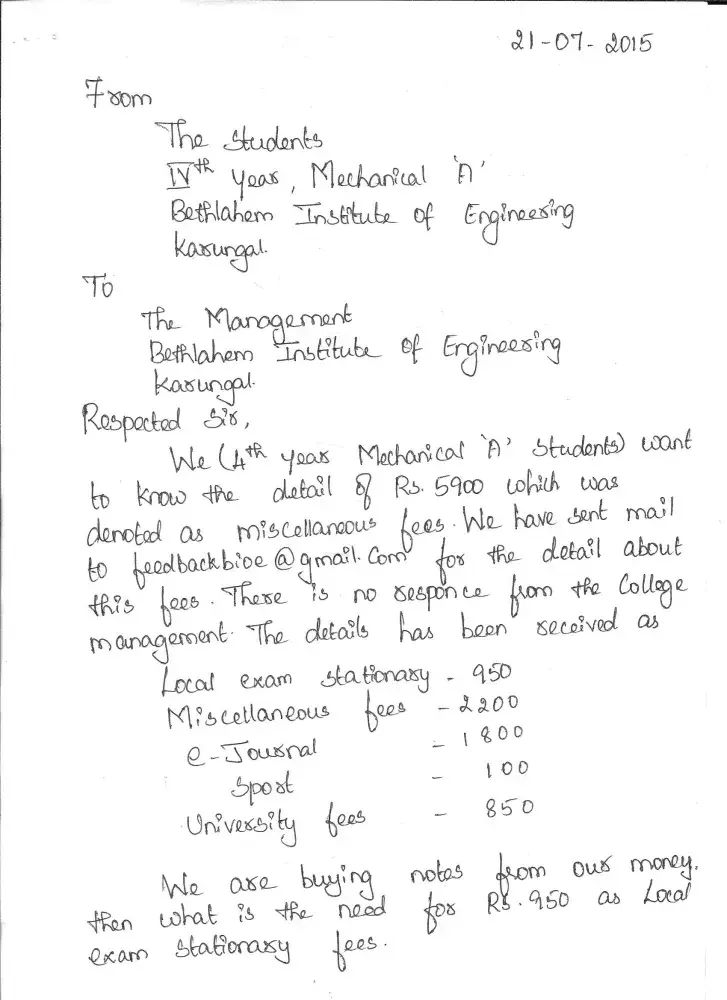 21-07-2015
From
The Students
IVth year, Mechanical 'A'
Bethlahem Institute of Engineering
Karungal.
To
The Management
Bethlahem Institute of Engineering
Karungal.
Respected Sir,
We (4th year Mechanical 'A' Students) want
to know the detail of Rs. 5900 which was
denoted as miscellaneous fees. We have sent mail
to feedbackbioe@gmail.com for the detail about
this fees. There is no responce from the College
management. The details has been received as
Local exam stationary - 950
Miscellaneous fees - 2200
e-Journal - 1800
Sport - 100
University fees - 850
We are buying notes from our money.
then what is the need for Rs. 950 as Local
exam stationary fees.